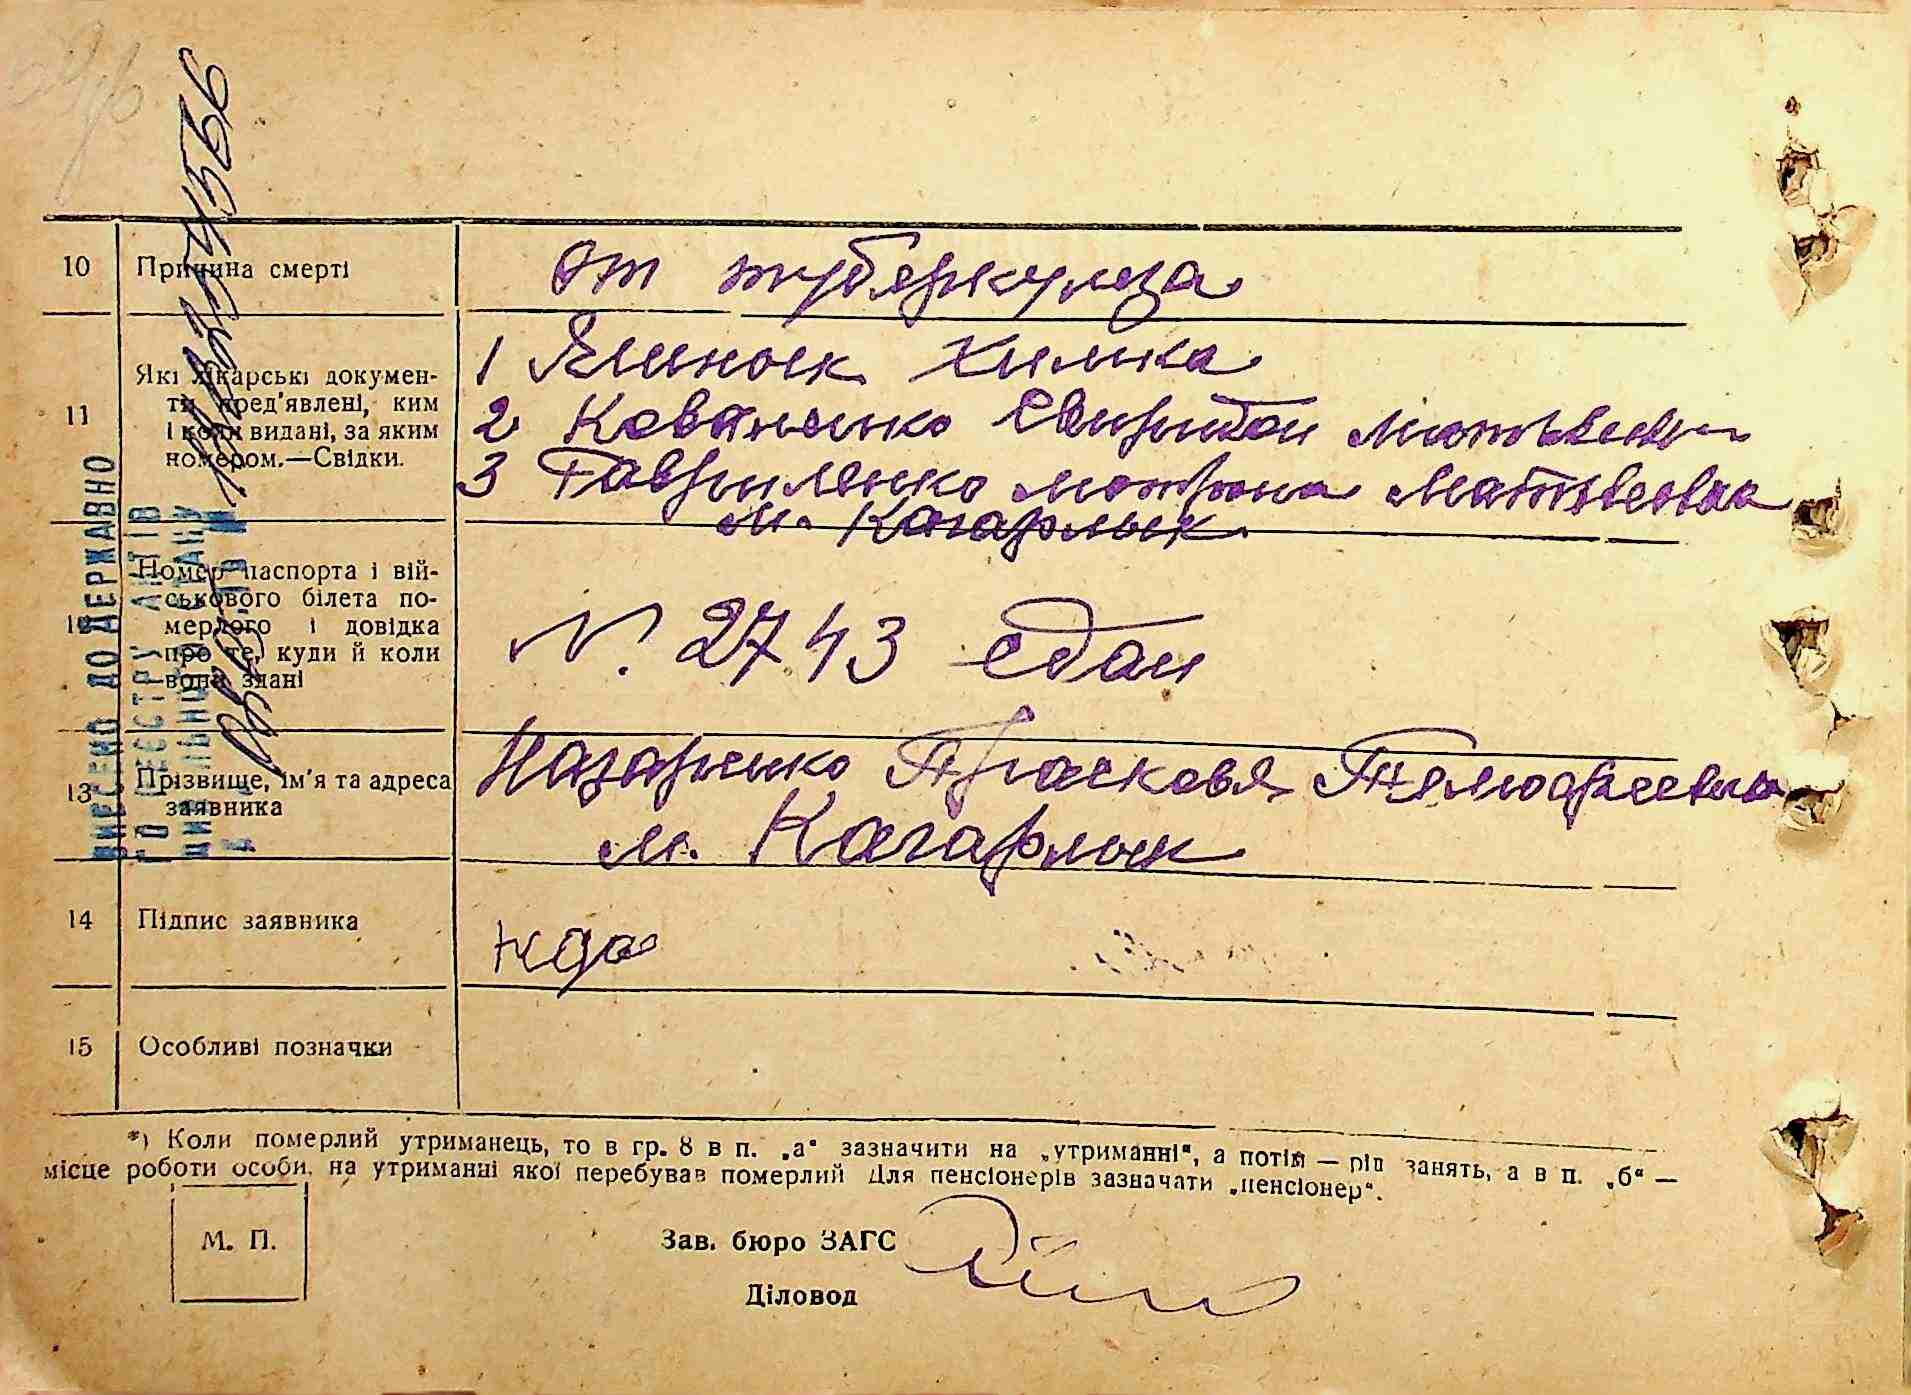 10 Причина смерті От туберкулеза
11 Які лікарські докумен-
ти пред'явлені, ким
і коли видані, за яким
номером.—Свідки.
1 Химка
2 Коваленко Свиридон
3 Гавриленко Мотрона Матвеевна
м. Кагарлык
12 Номер паспорта і вій-
ськового білета по-
мерлого і довідка
про те, куди й коли
вони здані
N. 2743 сдан
13 Прізвище, ім'я та адреса
заявника
Назаренко Прасковья
м. Кагарлык
14 Підпис заявника
15 Особливі позначки
*) Коли померлий утриманець, то в гр. 8 в п. „а“ зазначити на „утриманні“, а потім — рід занять, а в п. „б“ —
місце роботи особи, на утриманні якої перебував померлий Для пенсіонерів зазначати „пенсіонер“.
М. П.
Зав. бюро ЗАГС
Діловод
ВНЕСЕНО ДО ДЕРЖАВНО
ГО РЕЄСТРУ АКТІВ
ЦИВІЛЬНОГО СТАНУ